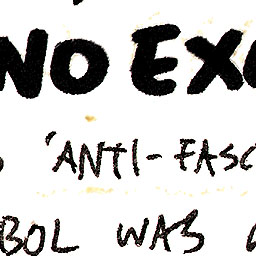 NO EXC
'ANTI-FASC
BOL WAS